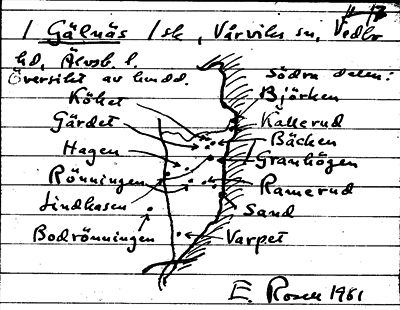 / Gälnäs /sk, Vårviks sn, Vedbo
hd, Älvsb. l.
Översikt av hundd.
Södra delen:
Köket
Björken
Gärdet
Källerud
Bäcken
Hagen
Granhögen
Rönningen
Ramerud
Lindhasen
Sand
Bodrönningen
Varpet
E. Rosell 1981